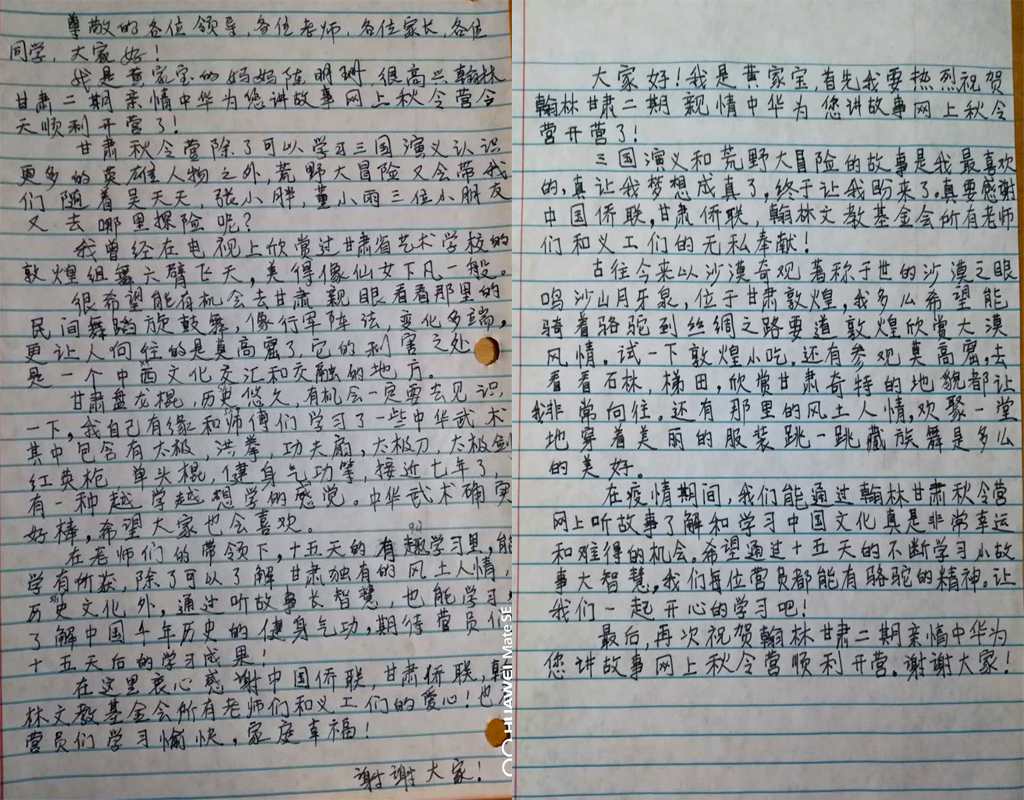 尊敬的各位领导,各位老师,各位家长,各位
同学,大家好!
我是黄家宝的妈妈陈明珊,很高兴翰林
甘肃二期亲情中华为您讲故事网上秋令营令
天顺利开营了!
甘肃秋令营除了可以学习三国演义认识
更多的英雄人物之外,荒野大冒险又会带我
们随着吴天天,张小胖,董小雨三位小朋友
又去哪里探险呢?
我曾经在电视上欣赏过甘肃省艺术学校的
敦煌组舞六臂飞天,美得像仙女下凡一般。
很希望能有机会去甘肃亲眼看看那里的
民间舞蹈旋鼓舞,像行军阵法,变化多端,
更让人向往的是莫高窟了,它的利害之处
是一个中西文化交汇和交融的地方。
甘肃盘龙棍,历史悠久,有机会一定要去见识
一下,我自己有缘和师傅们学习了一些中华武术
其中包含有太极,洪拳,功夫扇,太极刀,太极剑
红英枪,单头棍,健身气功等,接近七年了,
有一种越学越想学的感觉。中华武术确实
好棒,希望大家也会喜欢。
在老师们的带领下,十五天的有趣学习里,能
学有所获,除了可以了解甘肃独有的风土人情,
历史文化外,通过听故事长智慧,也能学习
了解中国千年历史的健身气功,期待营员们
十五天后的学习成果!
在这里衷心感谢中国侨联,甘肃侨联,翰
林文教基金会所有老师们和义工们的爱心!也
营员们学习愉快,家庭幸福!
谢谢大家!
HUAWEI Mate SE
大家好!我是黄家宝,首先我要热烈祝贺
翰林甘肃二期亲情中华为您讲故事网上秋令
营开营了!
三国演义和荒野大冒险的故事是我最喜欢
的,真让我梦想成真了,终于让我盼来了。真要感谢
中国侨联,甘肃侨联,翰林文教基金会所有老师
们和义工们的无私奉献!
古往今来以沙漠奇观著称于世的沙漠之眼
鸣沙山月牙泉,位于甘肃敦煌,我多么希望能
骑着骆驼到丝绸之路要道敦煌欣赏大漠
风情。试一下敦煌小吃。还有参观莫高窟,去
看看石林,梯田,欣赏甘肃奇特的地貌都让
我非常向往。还有那里的风土人情,欢聚一堂
地穿着美丽的服装跳一跳藏族舞是多么
的美好。
在疫情期间,我们能通过翰林甘肃秋令营
网上听故事了解和学习中国文化真是非常幸运
和难得的机会。希望通过十五天的不断学习小故
事大智慧,我们每位营员都能有骆驼的精神。让
我们一起开心的学习吧!
最后,再次祝贺翰林甘肃二期亲情中华为
您讲故事网上秋令营顺利开营。谢谢大家!